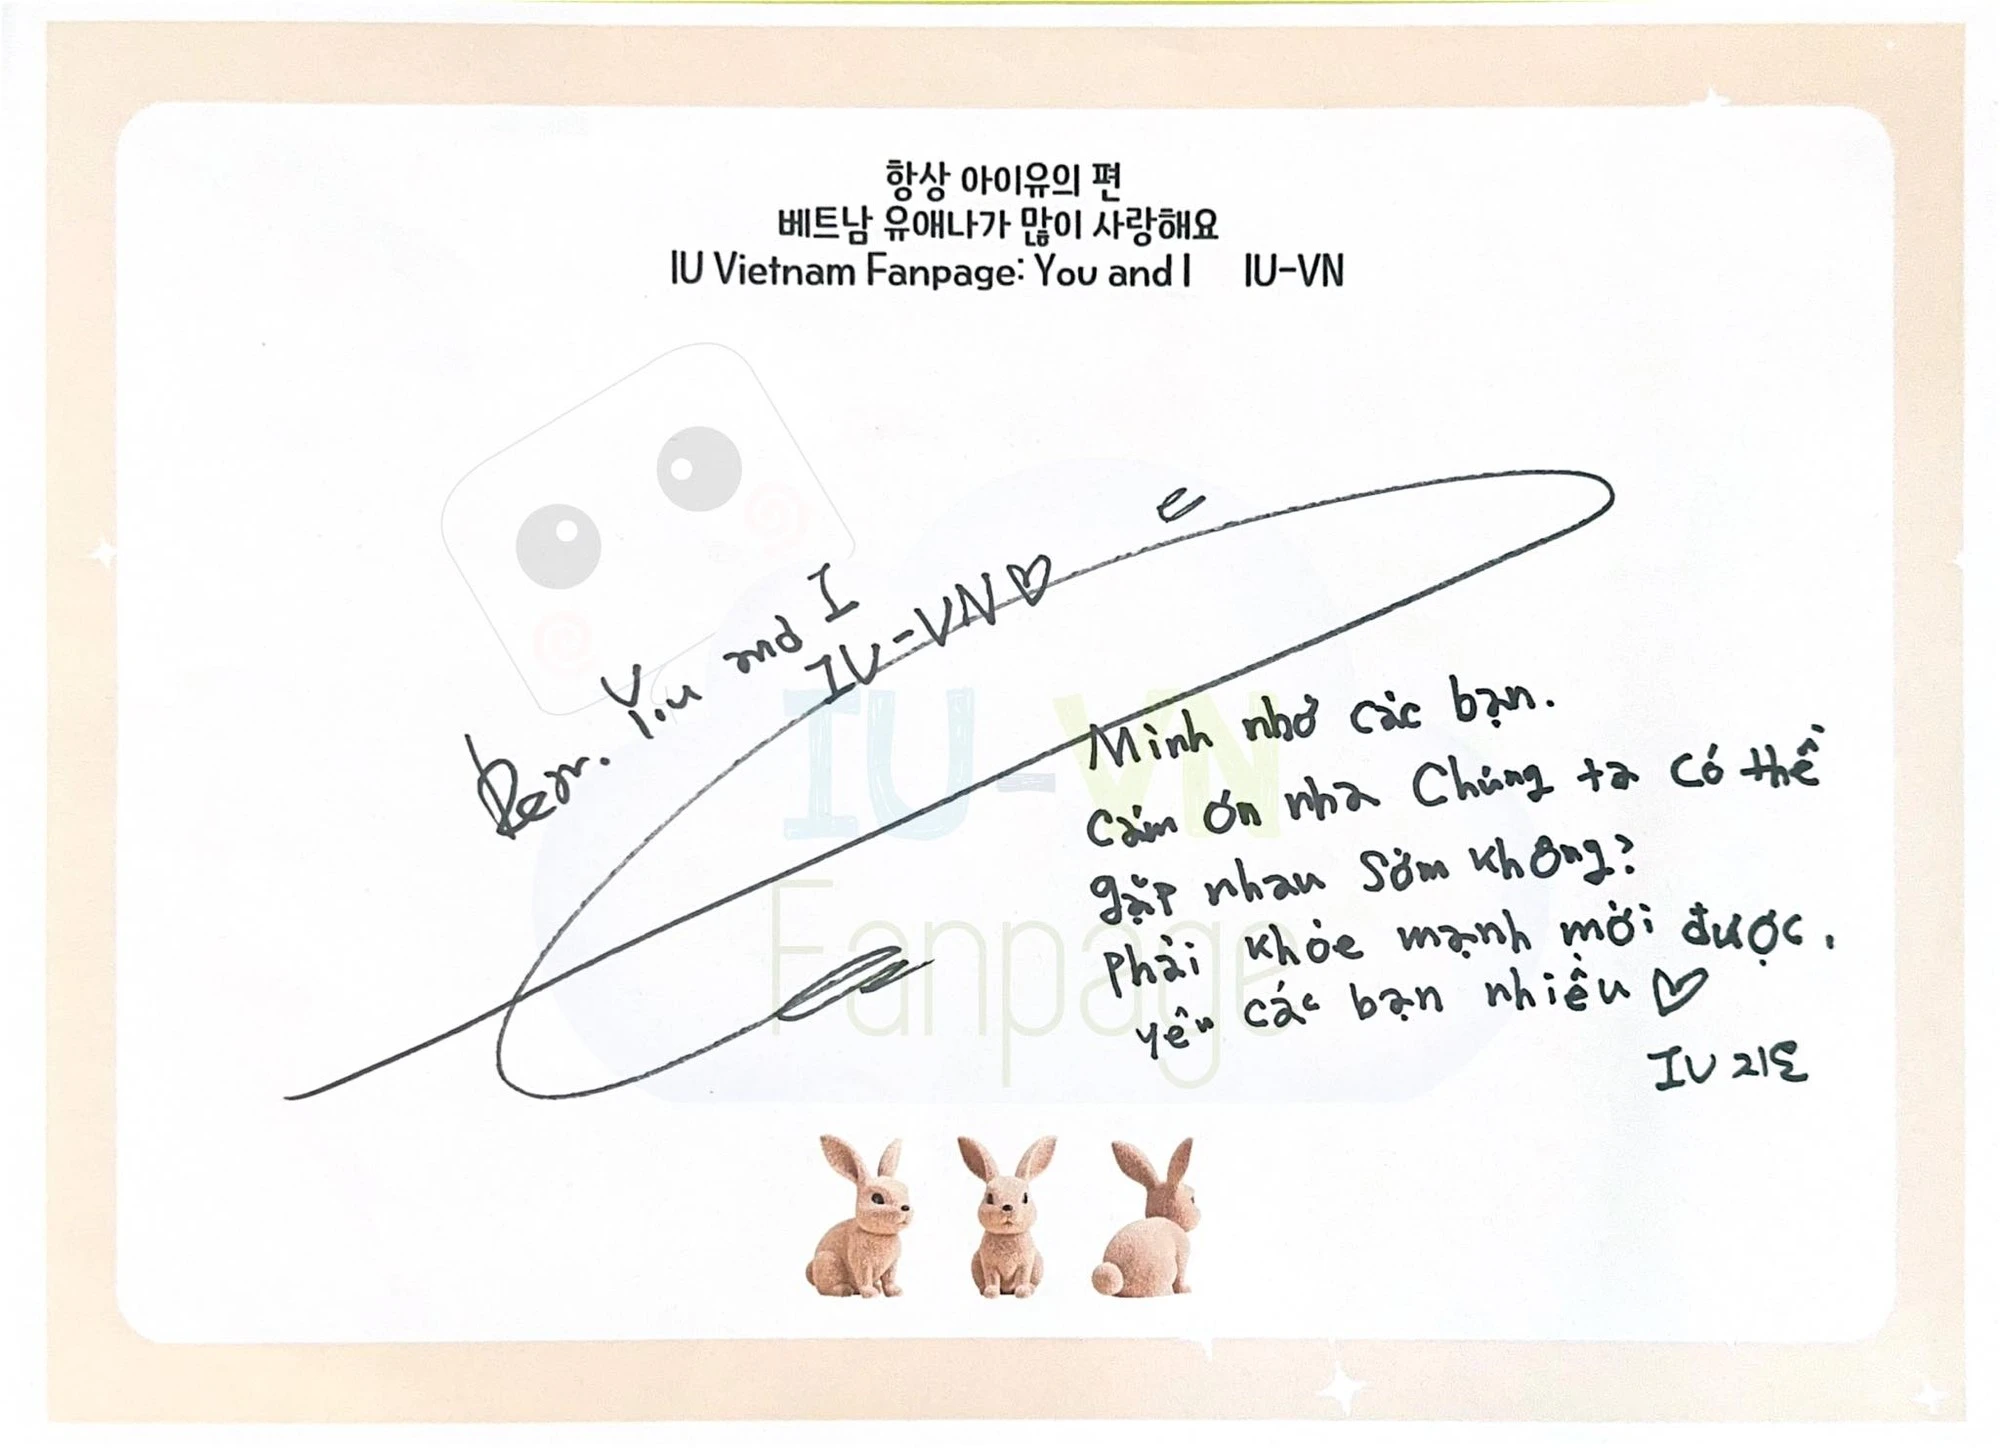 항상 아이유의 편
베트남 유애나가 많이 사랑해요
IU Vietnam Fanpage: You and I IU-VN
Dear. You and I
IU-VN♡
IU-VN
Fanpage
Mình nhớ các bạn.
Cảm ơn nha Chúng ta có thể
gặp nhau sớm không?
Phải khỏe mạnh mới được.
yêu các bạn nhiều ♡
IU 지은